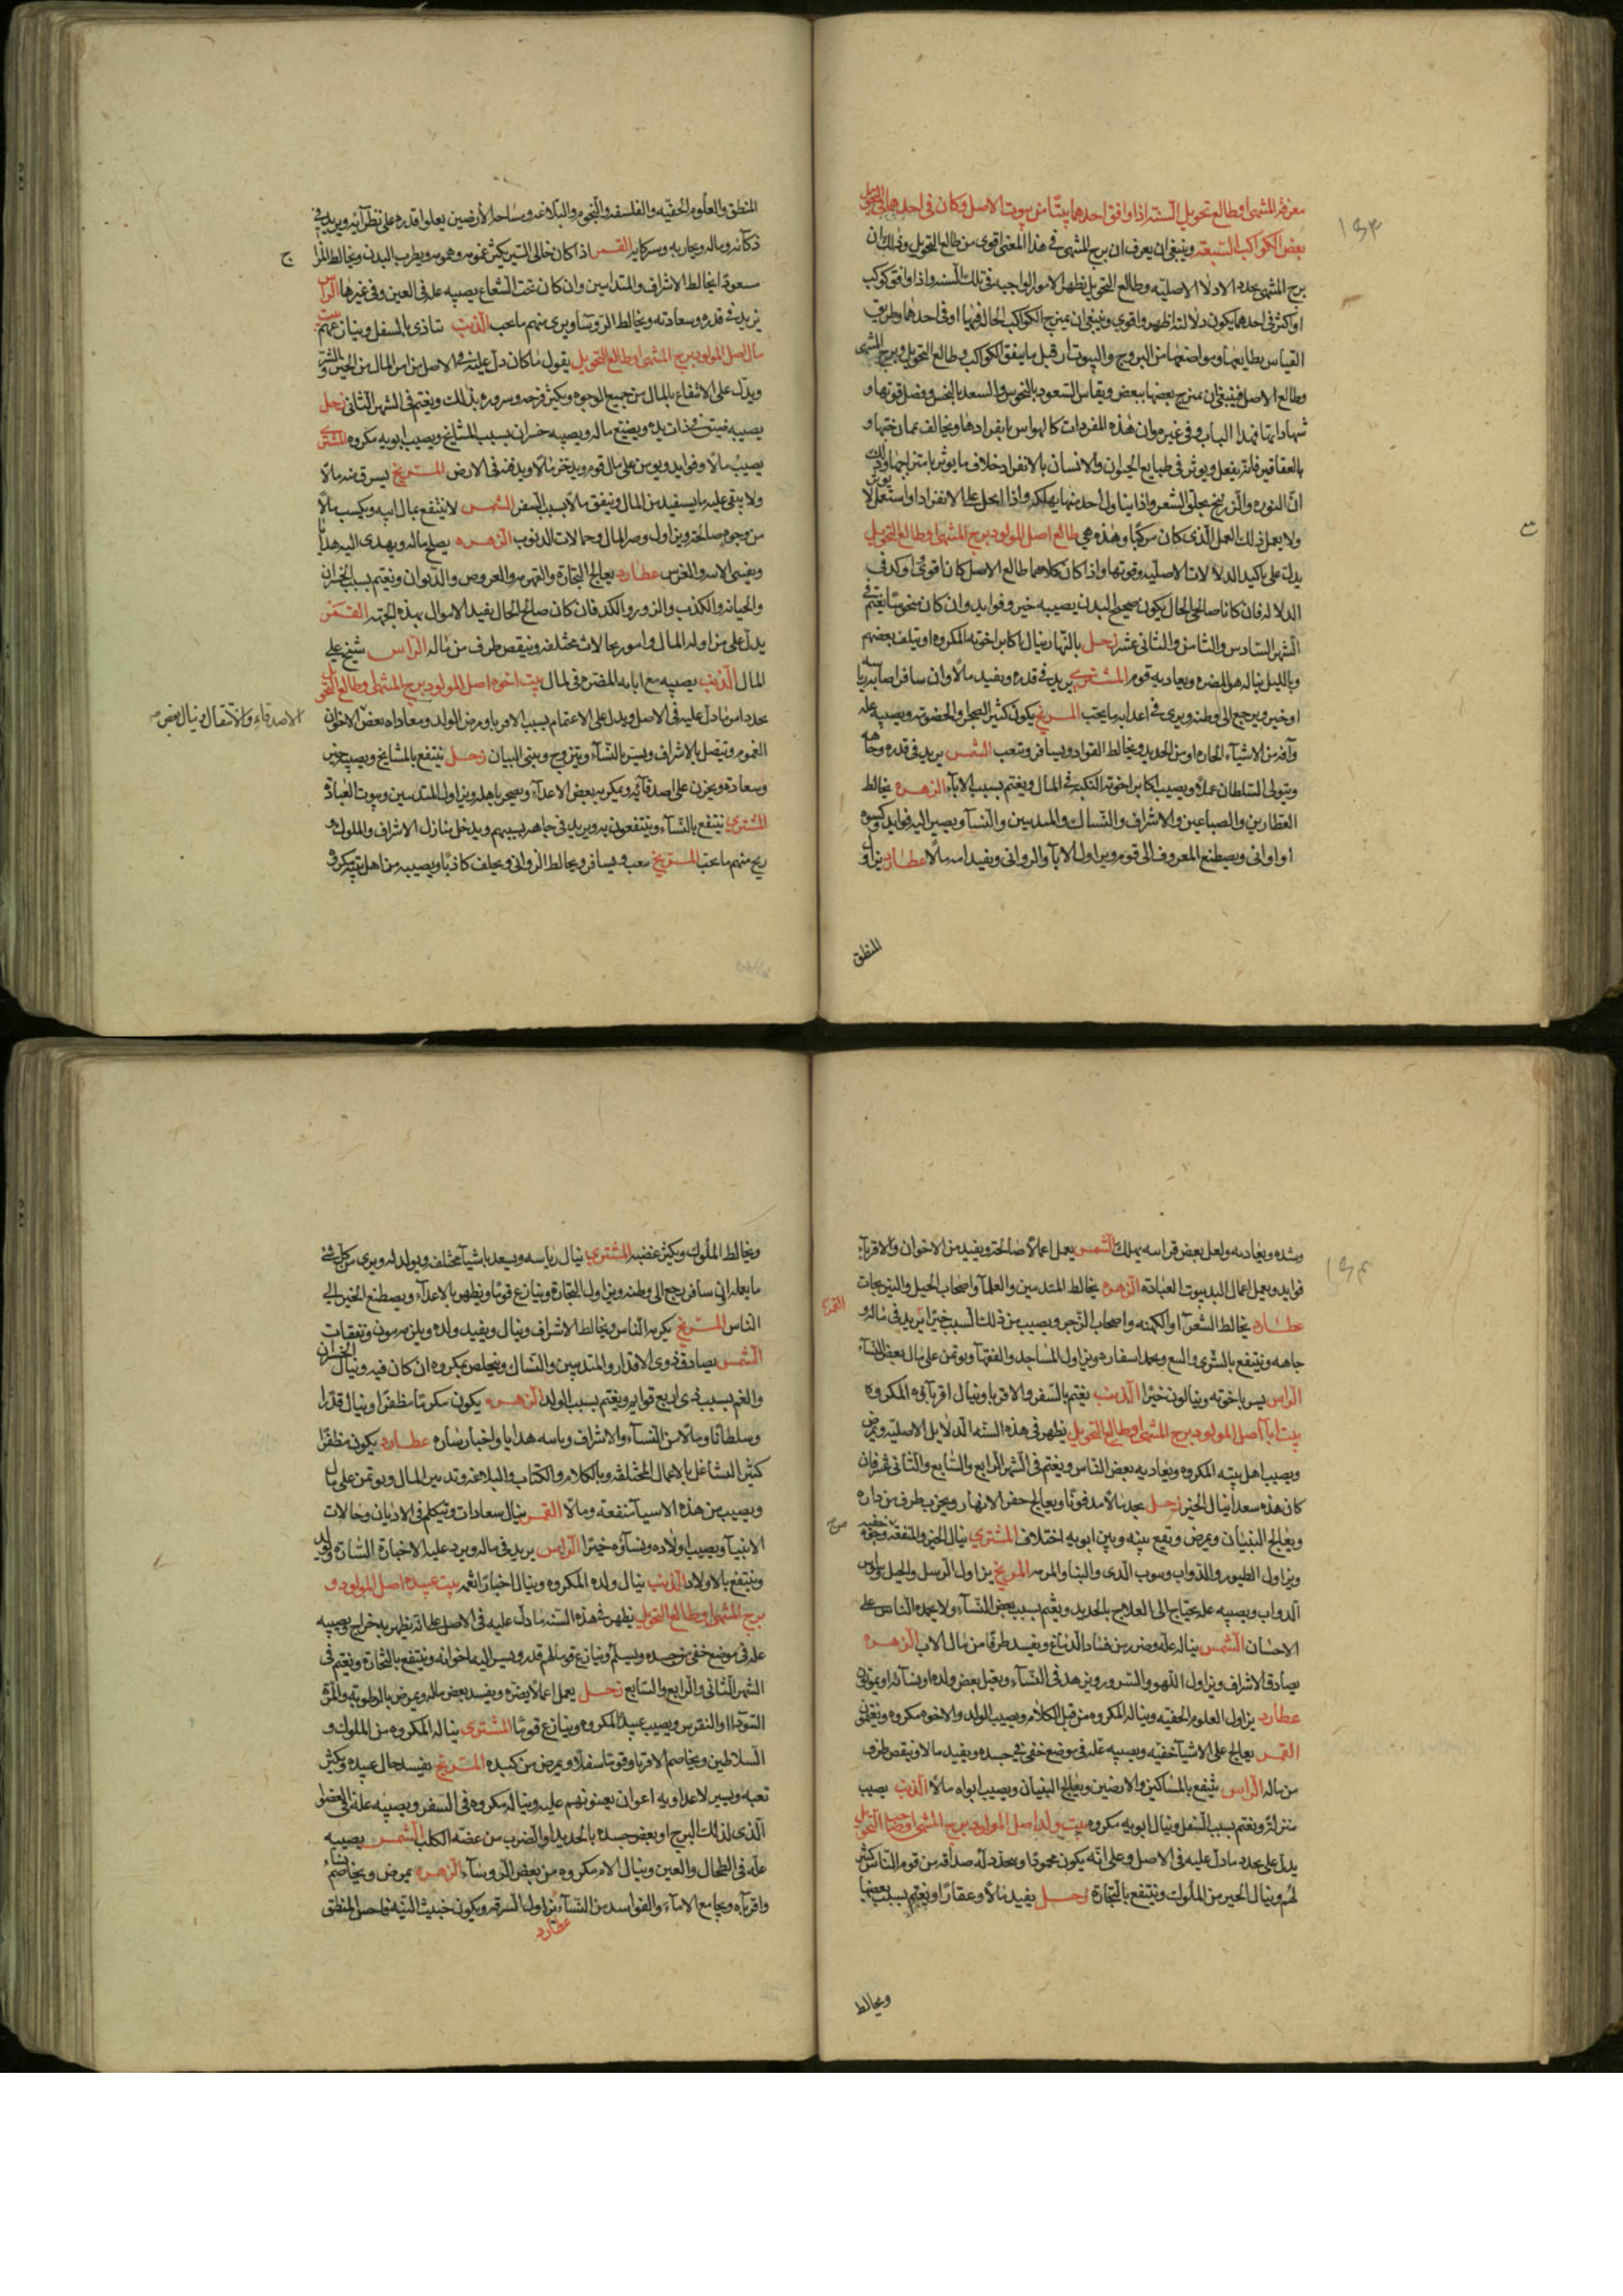 معرفة المنتهى وطالع تحويل السنة اذا وافق احدهما بيتا من بيوت الاصل وكان فى احدهما فى التحويل
بعض الكواكب السبعة وينبغى ان يعرف ان برج المنتهى فى هذا المعنى اقوى من طالع التحويل وذلك ان
برج المنتهى يجدد الادلا الاصليه وطالع التحويل يظهر الامور الواجبه فى تلك السنه واذا وافق كوكب
او اكثر فى احدهما يكون دلالته اظهر واقوى وينبغى ان يمزج الكواكب الحاله فيهما او فى احدهما وطريق
القياس بطبايعها ومواضعها من البروج والبيوت من قبل ما يتفق الكواكب فى طالع التحويل وبرج المنتهى
وطالع الاصل فينبغى ان يمزج بعضها ببعض ويقاس السعود بالنحوس والسعد بالنحس وفضل قوتها و
شهاداتها بهذا الباب وفى غيره وان هذه المفردات كالهواس بانفرادها ويخالف ممازجتها و
بالعقاقير فانه يفعل ويوثر فى طبايع الحيوان والانسان بالانفراد خلاف ما يوثر بامتزاجها وذلك
ان النوره والزرنيخ يحلق الشعر واذا يتناول احد منها يهلكه واذا يحل على الانفراد او استعمل لا يوثر
ولا يعمل ذلك العمل الذى كان مركبا وهذه هى طالع اصل المولود برج المنتهى وطالع التحويل
يدل على تاكيد الدلالات الاصليه وقوتها واذا كان كلاهما طالع الاصل كانا اقوى واوكد فى
الدلاله فان كانا صالحى الحال يكون صحيح البدن يصيبه خير وفوايد وان كان منحوسا يغتم فى
الشهر السادس والثامن والثانى عشر زحل بالنهار ينال اكابر اخوته المكروه او يتلف بعضهم
وبالليل يناله هو المضره ويعاديه قوم المشترى يزيد فى قدره ويفيد مالا وان سافر اصاب رياسه
او خير ويرجع الى وطنه ويرى فى اعدائه ما يحب المريخ يكون كثير العجل والخصومه ويصيبه عله
وآفه من الاشياء الحاره او من الحديد ويخالط القواد ويسافر ويتعب الشمس يزيد فى قدره وجاهه
ويتولى السلطان عملا ويصيب اكابر اخوته النكبه فى المال ويغتم بسبب الآباء الزهره يخالط
العطارين والصباغين والاشراف والنساك والمتدينين والنساء ويصير اليه فوايد وكسوه
او اوانى ويصطنع المعروف الى قومه ويزاول الآباء والزوانى ويفيد امه مالا عطارد يزاول
المنطق
المنطق والعلوم الخفيه والفلسفه والنجوم والبلاغه ومساحه الارضين يعلو قدره على نظرآئه ويزيد فى
ذكائه وماله وتجاربه وسركاته القمر اذا كان خالى السير يكثر غمومه وهمومه ويطرب البدن ويخالط المرا
ج
مسعودا يخالط الاشراف والمتدينين وان كان تحت الشعاع يصيبه عله فى العين وفى غيرها الراس
يزيد فى قدره وسعادته ويخالط الروسآ ويرى منهم ما يحب الذنب يتاذى بالسفل وينازعهم بيت
مال اصل المولود برج المنتهى وطالع التحويل يقول ما كان دل عليه فى الاصل من امر المال من الخير والشر
ويدل على الانتفاع بالمال من جميع الوجوه ويكثر فرحه وسروره بذلك ويغتم فى الشهر الثانى زحل
يصيبه ضيق فى ذات يده ويضيع ماله ويصيبه خسران بسبب المشايخ ويصيب ابويه مكروه المشترى
يصيب مالا وفوايد ويوتمن على مال قوم ويدخر مالا ويدفنه فى الارض المريخ يسرق منه مالا
ولا يبقى عليه ما يستفيد من المال وينفق مالا بسبب السفر الشمس لا ينتفع بمال ابيه ويكسب مالا
من وجوه صالحه ويزاول وصر المال وحمالات الديوب الزهره يصلح ماله ويهدى اليه هدايا
ويفشى الاسر والغرس عطارد يعالج التجارة والقهرمه والعروض والديوان ويغتم بسبب الخسران
والخيانه والكذب والزور والكد فان كان صالح الحال يفيد الاموال بهذه الجهة القمر
يدل على مزاوله المال وامور بحالات مختلفه وينقص طرف من ماله الراس شيخ على
المال الذنب يصيبه مع ابائه المضره فى المال بيت اخوه اصل المولود برج المنتهى وطالع التحويل
يجدد امر ما دل عليه فى الاصل ويدل على الاغتمام بسبب الاقربا ومرض الولد ومعاداه بعض الاخوان
الاصدقاء والانتقال وينال بعض
الغموم ويتصل بالاشراف ويسر بالنساء ويتزوج ويبنى البنيان زحل ينتفع بالمشايخ ويصيب خير
وسعاده ويحزن على اصدقائه ويمكر به بعض الاعداء ويضجر باهله ويزاول المتدينين وبيوت العبادة
المشترى ينتفع بالنساء وينتفعون به ويزيد فى جاهه بسببهم ويدخل منازل الاشراف والملوك و
يرى منهم ما يحب المريخ يتعب ويسافر ويخالط الزوانى ويحلف كاذبا ويصيبه من اهل بيته مكروه
وشده ويعاديه ولعل بعض قراباته يهلك الشمس يعمل اعمالا صالحة ويفيد من الاخوان والاقربآء
فوايد ويعمل اعمال البد بيوت العباده الزهره يخالط المتدينين والعلمآ واصحاب الحيل والنيرنجات
عطارد يخالط الشعرآ والكهنه واصحاب الزجر ويصيب من ذلك السبب خيرا يزيد فى ماله و
القمر
جاهه وينتفع بالشرى والبيع ويحمد اسفاره ويزاول المساجد والفقهآ ويوتمن على مال بعض النسآء
الراس يسر باخوته وينالون خيرا الذنب يغتم بالسفر والاقربا وينال اقربآئه المكروه
بيت اباآ اصل المولود برج المنتهى وطالع التحويل يظهر فى هذه السنه الدلايل الاصليه ويمرض
ويصيب اهل بيته المكروه ويعاديه بعض الناس ويغتم فى الشهر الرابع والسابع والثانى عشر فان
كان هذه سعدا ينال الخير زحل يجد مالا مدفونا ويعالج حفر الانهار ويخرب طرف من داره
ويعالج البنيان ويمرض ويقع بينه وبين ابويه اختلاف المشترى ينال الخير والمنفعه وجوه خفيه
ويزاول الطيور والدواب وسوب الذى والبنا والمرمه المريخ يزاول الرسل والخيل
الدواب ويصيبه عله يحتاج الى العلاج بالحديد ويغتم بسبب بعض النسآء ولا يحمده الناس على
الاحسان الشمس يناله عله وضرر من فساد الدماغ ويفيد طرفا من مال الاب الزهره
يصادق الاشراف ويزاول اللهو والسرور ويزهد فى النسآء ويعتل بعض ولده او نسآئه او يموتان
عطارد يزاول العلوم الخفيه ويناله المكروه من قبل الكلام ويصيب الولد والاخوه مكروه
القمر يعالج على الاشيآ خفيه ويصيبه عله فى موضع خفى فى جسده ويفيد مالا وينقص طرف
من ماله الراس ينتفع بالمساكين والارضين ويعالج البنيان ويصيب ابواه مالا الذنب يصيب
منزلة ويغتم بسبب السفل وينال ابويه مكروه بيت ولد اصل المولود برج المنتهى وصاحب التحويل
يدل على يجدد ما دل عليه فى الاصل وعلى انه يكون محمودا ويتجدد له صداقه من قوم الناس كثير
لهم وينال الخير من الملوك وينتفع بالتجارة زحل يفيد مالا وعقارا ويغتم بسبب بعضها
ويخالط
ويخالط الملوك ويكثر غضبه المشترى ينال رياسه ويسعد باشيآ مختلفه ويولد له ويرى من كل شى
ما يعمله ان سافر يرجع الى وطنه ويزاول التجارة وينازع قوما ويظهر بالاعدآء ويصطنع الخير الى
الناس المريخ يكرمه الناس ويخالط الاشراف وينال ويفيد ولده ويلزمه مون ونفقات
الشمس يصادق ذوى الاقدار والمتدينين والنساك ويخلص بمكروه ان كان فيه وينال الخسران
والغم بسبب ذى اربع قوايم ويغتم بسبب الولد الزهره يكون مكرما مظفرا وينال قدرا
وسلطانا ومالا من النسآء والاشراف وياسه هدايا واخبار ساره عطارد يكون مظفرا
كثير التشاغل بالاعمال المختلفه وبالكلام والكتاب والبلاغه وتدبير المال ويوتمن على مال
ويصيب من هذه الاسيآ منفعه ومالا القمر ينال سعادات ويتكلم فى الاديان وحالات
الانبيآ ويصيب اولاده ونسآؤه خيرا الراس يزيد فى ماله ويرد عليه الاخبارة السارة
وينتفع بالاولاد الذنب ينال ولده المكروه وينال اخبارا بيت عبيده اصل المولود و
برج المنتهى وطالع التحويل يظهر فى هذه السنه ما دل عليه فى الاصل على انه يظهر به خراج ويصيبه
عله فى موضع خفى من جسده ويسلم وينازع قوما لهم قدر ويسير اليه ما خوانه وينتفع بالتجارة ويغتم فى
الشهر الثانى والرابع والسابع زحل يعمل اعمالا يضره ويفسد بعض ماله ويمرض بالرطوبة والمرة
السودا والنقرس ويصيب عبيده المكروه وينازع قوما المشترى يناله المكروه من الملوك و
السلاطين ويخاصم الاقربا وقوما سفلا ويمرض من كبده المريخ يفسد حال عبيده ويكثر
تعبه ويسير لاعدآئه اعوان يعينونهم عليه ويناله مكروه فى السفر ويصيبه عله فى العضو
الذى لذلك البرج او بعض جسده بالحديد او الضرب من عضه الكلب الشمس يصيبه
عله فى الطحال والعين وينال الام مكروه من بعض الروسآء الزهره يمرض ويخاصم نسآء
واقربآه ويجامع الامآء والفواسد من النسآء يزاول السرقه ويكون خبيث النيه فاحش المنطق
عطارد